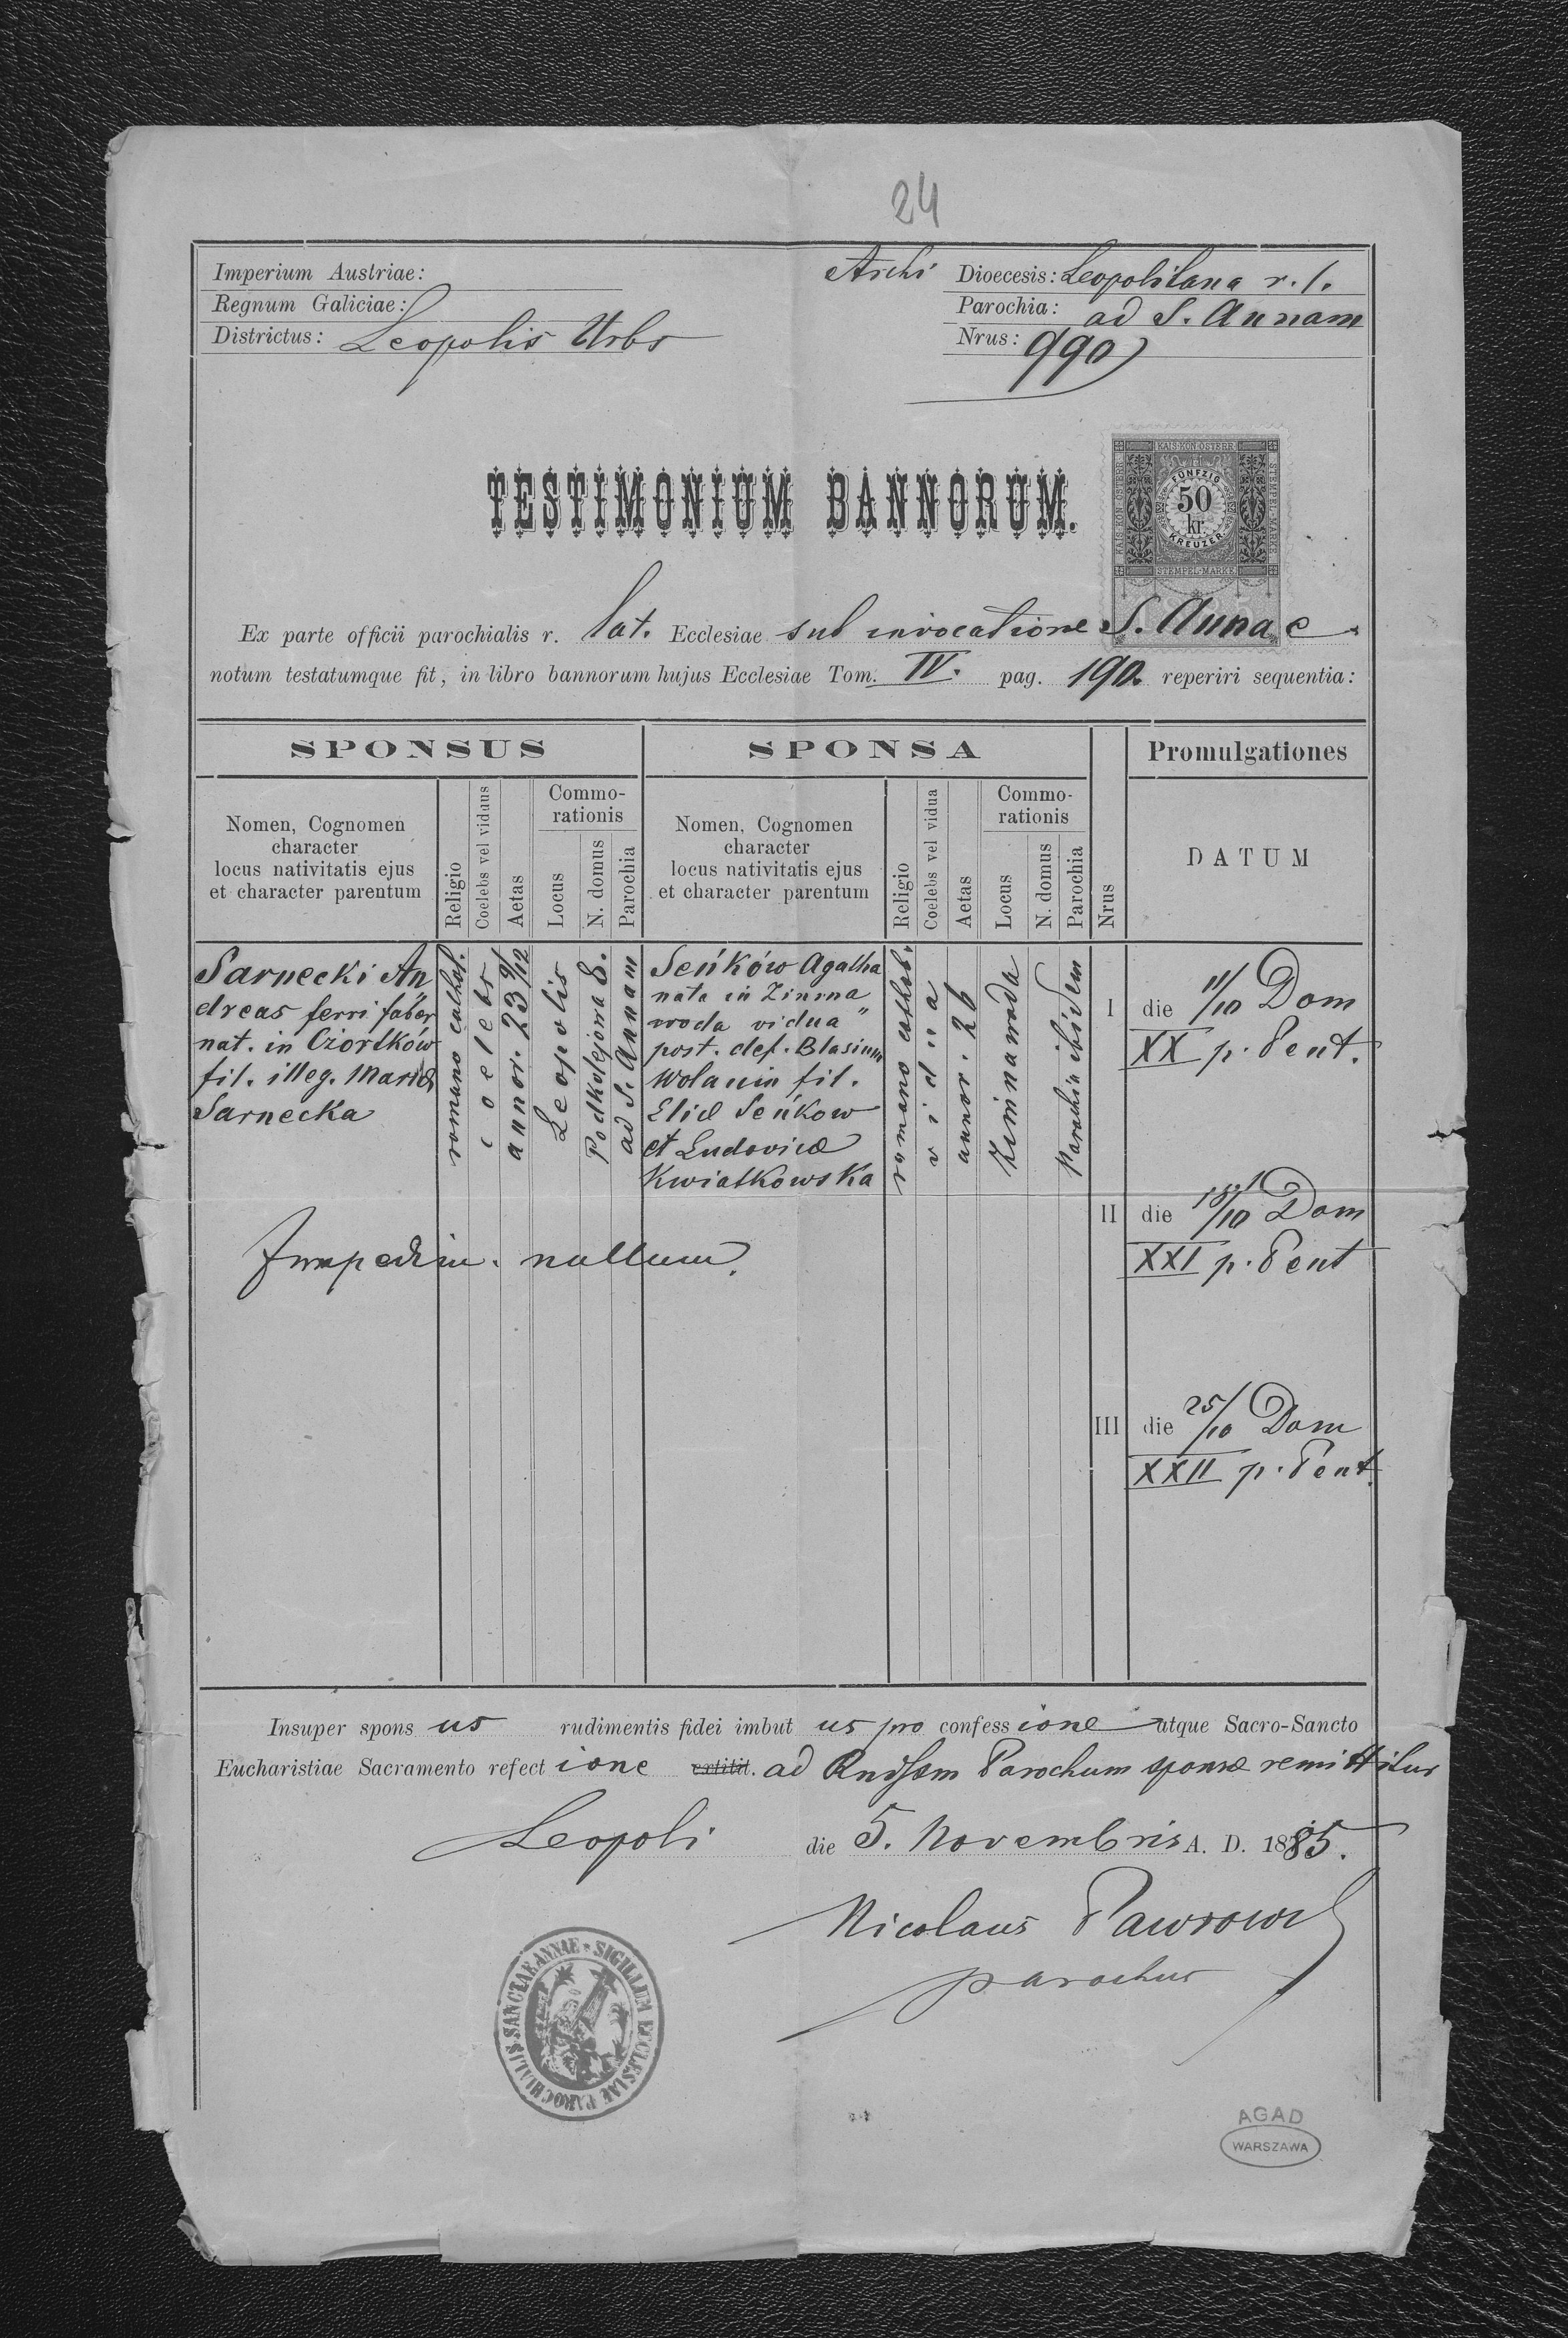 24
Imperium Austriae:
Regnum Galiciae:
Districtus: Leopolis Urbs
Archi Dioecesis: Leopolitana r. l.
Parochia: ad S. Annam
Nrus: 990
TESTIMONIUM BANNORUM.
KAIS·KÖN·ÖSTERR
FÜNFZIG
50
kr.
KREUZER
STEMPEL-MARKE
Ex parte officii parochialis r. lat. Ecclesiae sub invocatione S. Annae
notum testatumque fit, in libro bannorum hujus Ecclesiae Tom. IV. pag. 190. reperiri sequentia:
SPONSUS
SPONSA
Nrus
Promulgationes
Nomen, Cognomen
character
locus nativitatis ejus
et character parentum
Religio
Coelebs vel viduus
Aetas
Commo-
rationis
Locus
N. domus
Parochia
Nomen, Cognomen
character
locus nativitatis ejus
et character parentum
Religio
Coelebs vel vidua
Aetas
Commo-
rationis
Locus
N. domus
Parochia
DATUM
Sarnecki An
dreas ferri faber
nat. in Czortków
fil. illeg. Mariæ
Sarnecka
romano cathol.
coelebs
annor. 23 9/12
Leopolis
Podkolejowa 8.
ad S. Annam
Seńków Agatha
nata in Zimna
woda vidua
post. def. Blasium
Wolanin fil.
Eliæ Seńkow
et Ludovicæ
Kwiatkowska
romano cathol.
vidua
annor. 26
Zimnawoda
Parochia ibidem
I die 11/10 Dom
XX p. Pent.
II die 18/10 Dom
XXI p. Pent
III die 25/10 Dom
XXII p. Pent.
Impedim. nullum.
Insuper spons us rudimentis fidei imbut us pro confess ione atque Sacro-Sancto
Eucharistiae Sacramento refect ione extitit. ad Rndssm Parochum sponsæ remittitur
Leopoli die 5. Novembris A. D. 1885.
Nicolaus
parochus
SIGILLUM ECCLESIAE PAROCHIALIS SANCTAE ANNAE
AGAD
WARSZAWA